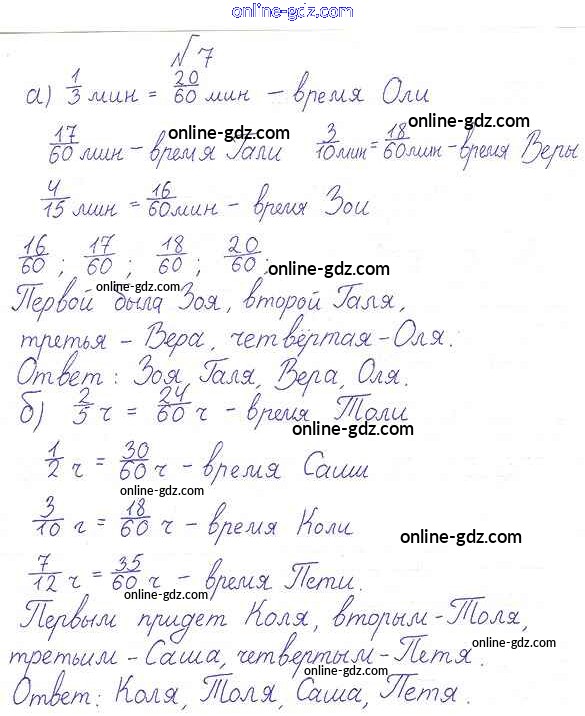 online-gdz.com
№ 7
а) 1/3 мин = 20/60 мин - время Оли
online-gdz.com online-gdz.com
17/60 мин - время Гали 3/10 мин = 18/60 мин - время Веры
4/15 мин = 16/60 мин - время Зои
16/60 ; 17/60 ; 18/60 ; 20/60 ;
online-gdz.com
online-gdz.com
Первой была Зоя, второй Галя,
третья - Вера, четвёртая - Оля.
online-gdz.com
Ответ: Зоя, Галя, Вера, Оля.
online-gdz.com
б) 2/5 ч = 24/60 ч - время Толи
online-gdz.com
1/2 ч = 30/60 ч - время Саши
online-gdz.com
3/10 ч = 18/60 ч - время Коли
online-gdz.com
7/12 ч = 35/60 ч - время Пети.
online-gdz.com
Первым придет Коля, вторым - Толя,
третьим - Саша, четвертым - Петя.
online-gdz.com
online-gdz.com
Ответ: Коля, Толя, Саша, Петя.
online-gdz.com